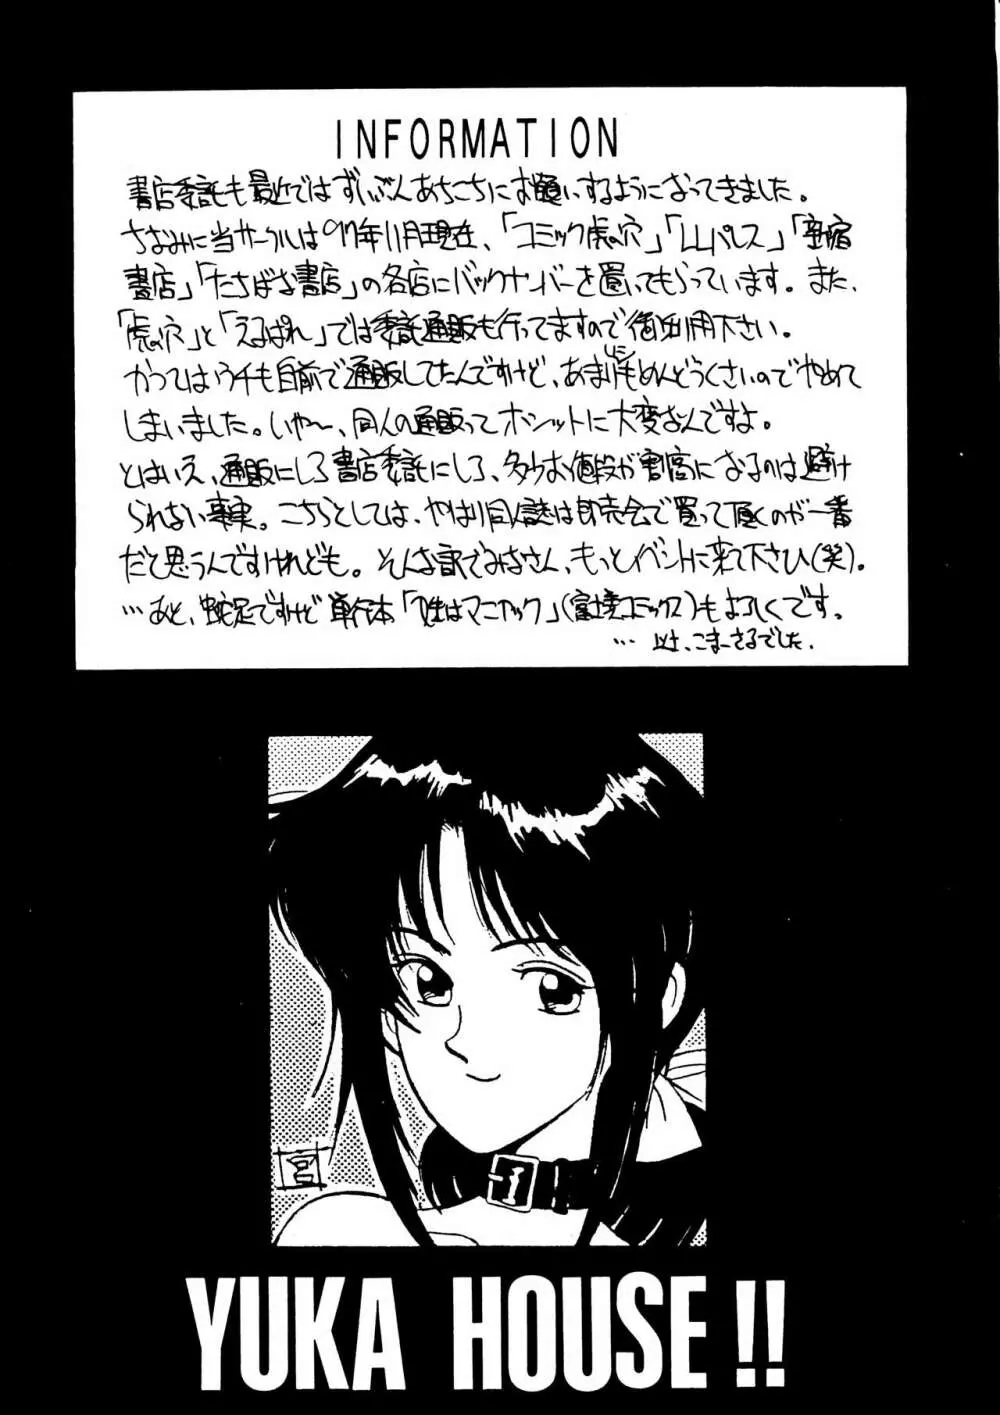 INFORMATION
書店委託も最近ではずいぶんあちこちにお願いするようになってきました。
ちなみに当サークルは'97年11月現在、「コミック虎の穴」「LLパレス」「新宿
書店」「たちばな書店」の各店にバックナンバーを置いてもらっています。また、
「虎の穴」と「えるぱれ」では委託通販も行ってますので御利用下さい。
かつてはウチも自前で通販してたんですけど、あまりにもめんどうくさいのでやめて
しまいました。いや〜、同人の通販ってホンットに大変なんですよ。
とはいえ、通販にしろ書店委託にしろ、多少お値段が割高になるのは避け
られない事実。こちらとしては、やはり同人誌は即売会で買って頂くのが一番
だと思うんですけれども。そんな訳でみなさん、もっとイベントに来て下さひ(笑)。
…あと、蛇足ですけど単行本「性はマニアック」(富士美コミックス)もよろしくです。
… 以上、こまーさるでした。
宮
YUKA HOUSE!!